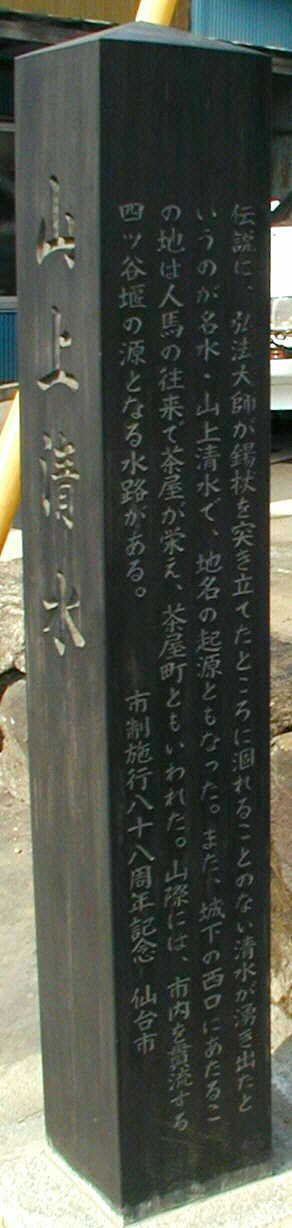 山上清水
伝説に、弘法大師が錫杖を突き立てたところに涸れることのない清水が湧き出たと
いうのが名水・山上清水で、地名の起源ともなった。また、城下の西口にあたるこ
の地は人馬の往来で茶屋が栄え、茶屋町ともいわれた。山際には、市内を貫流する
四ツ谷堰の源となる水路がある。
市制施行八十八周年記念 仙台市